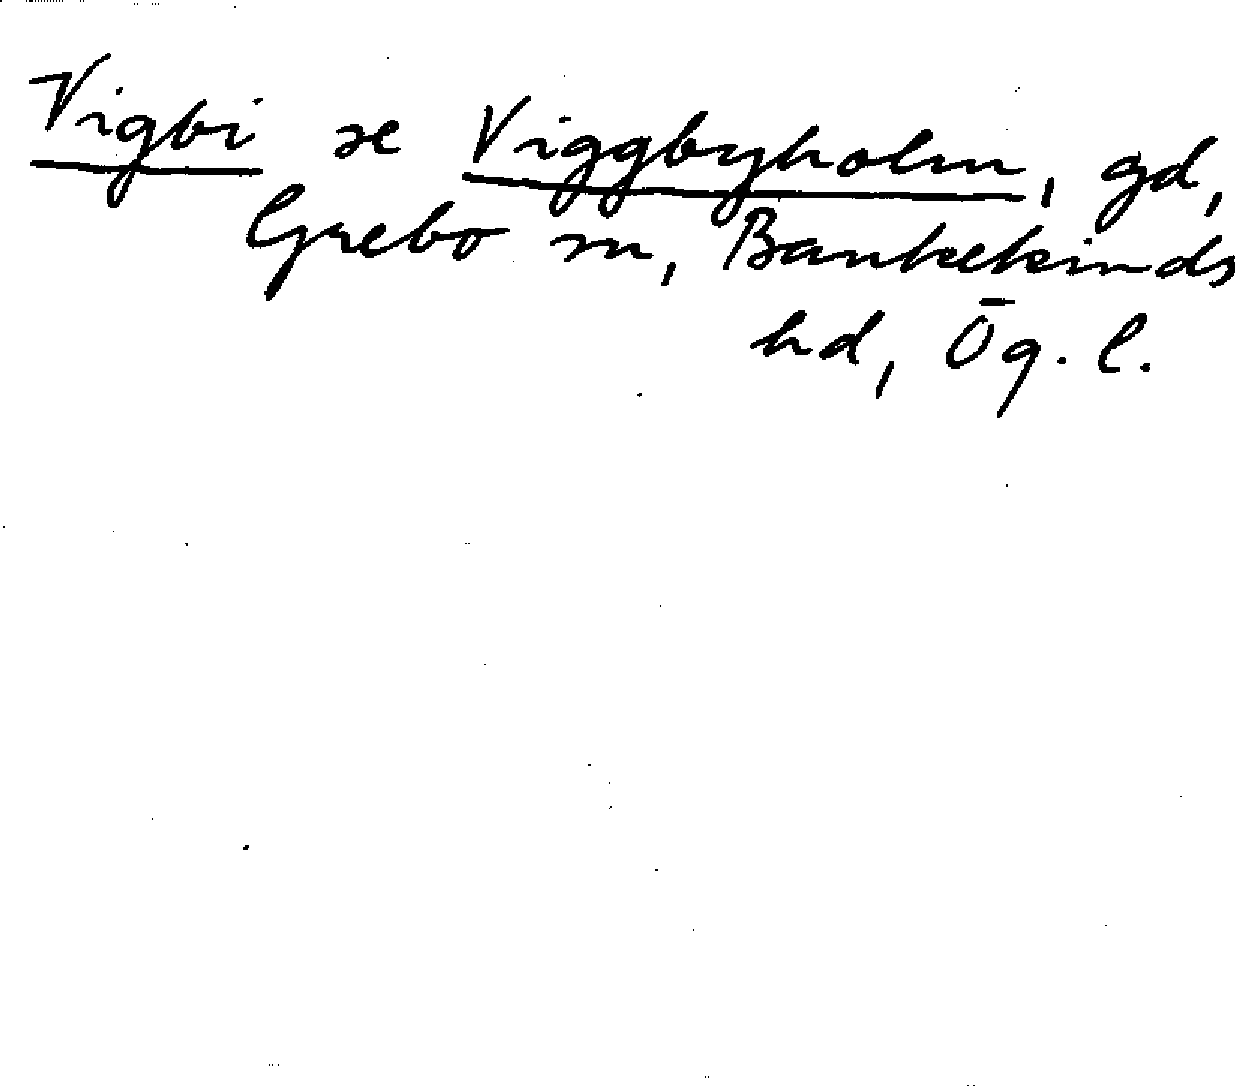 Vigbi se Viggbyholm, gd,
Grebo sn, Bankekinds
hd, Ög. l.